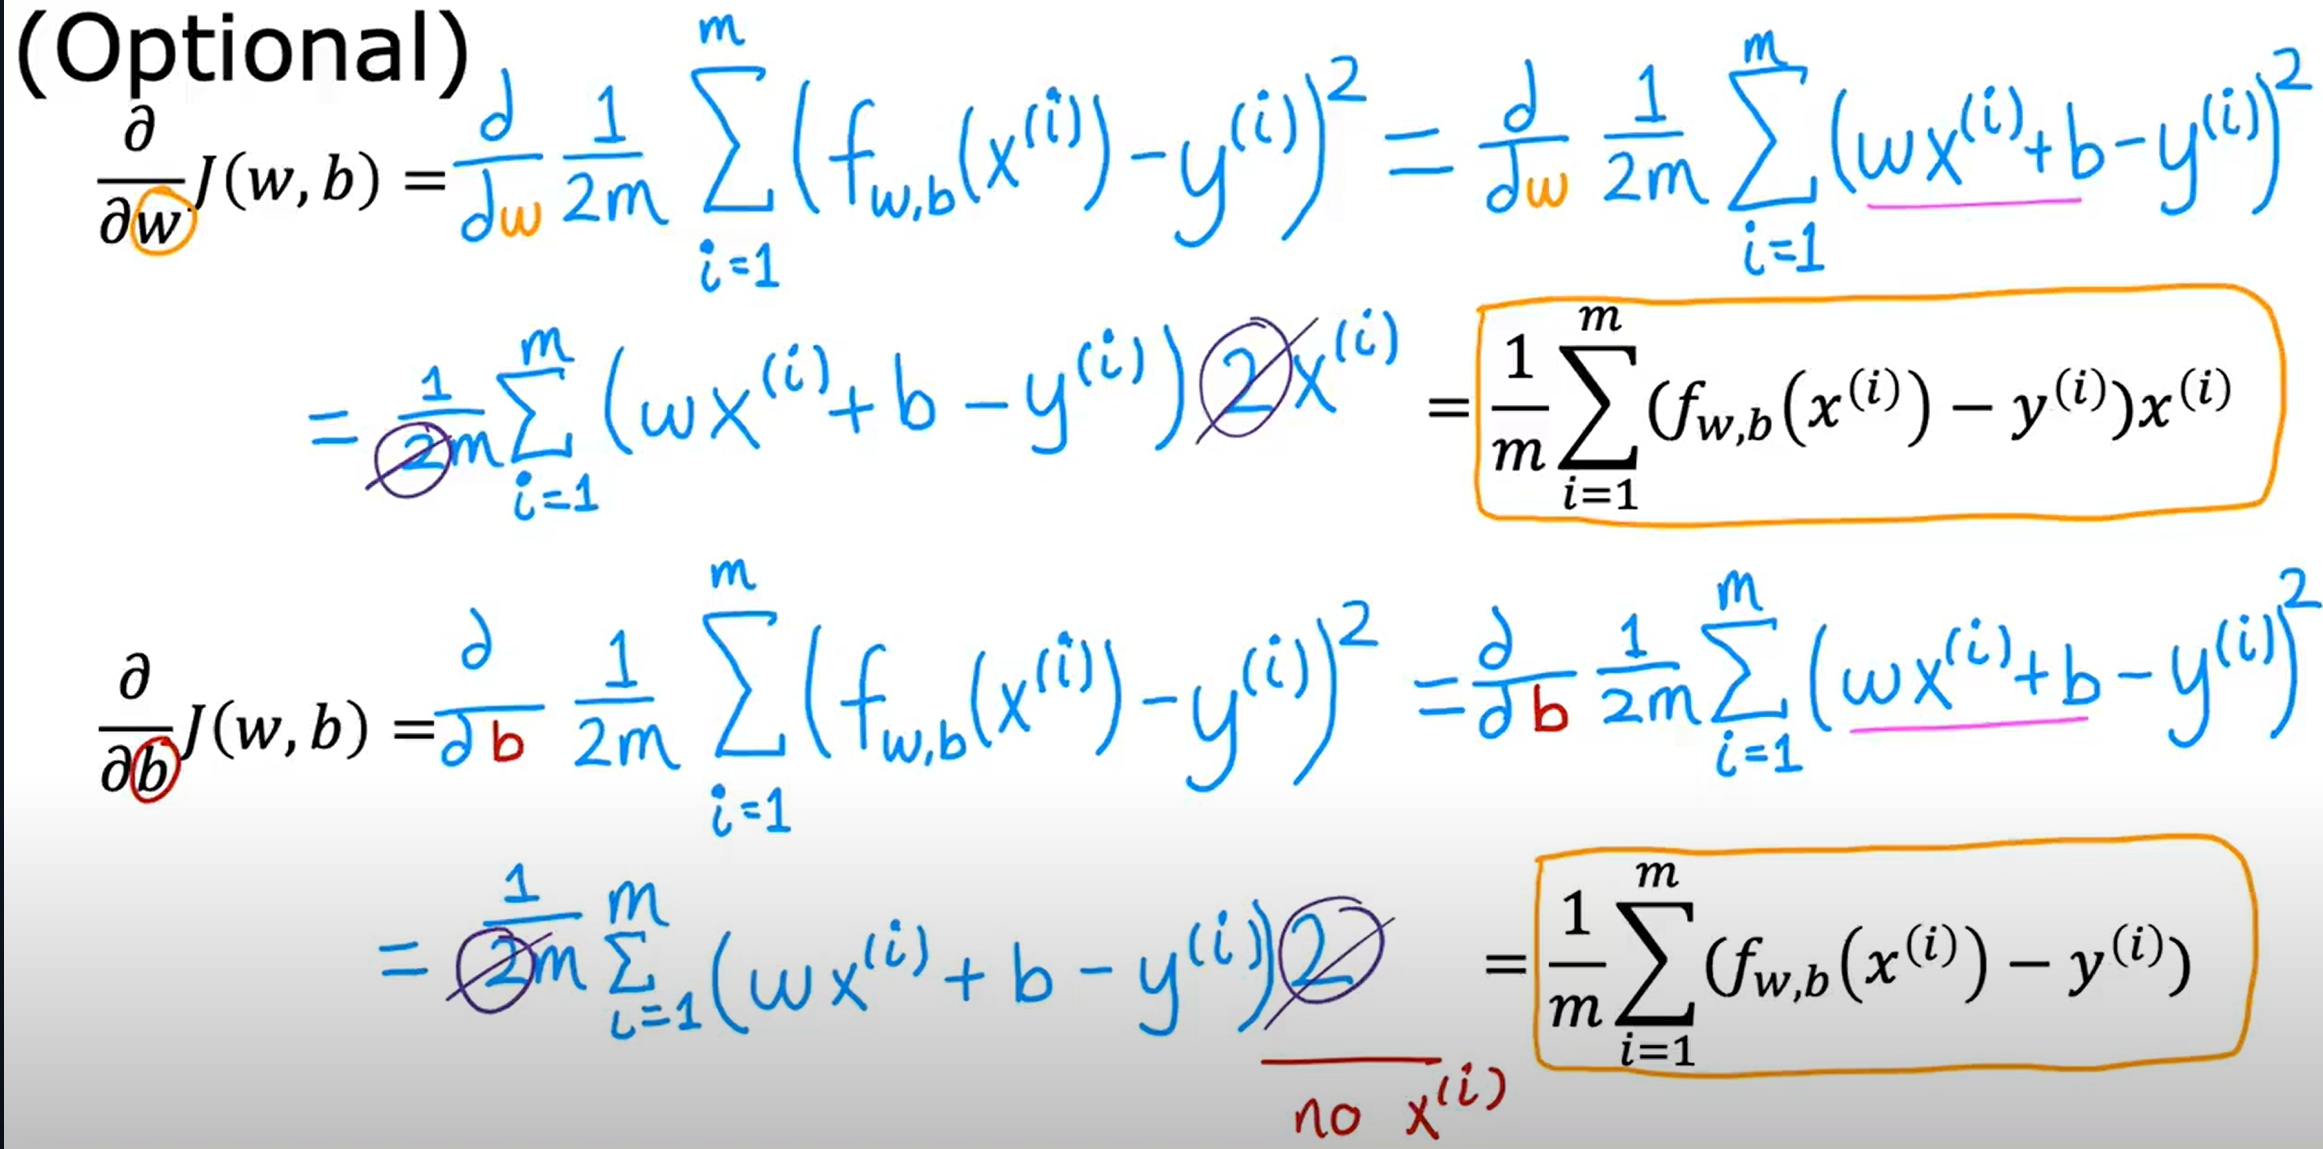 (Optional)
∂/∂w J(w, b) = d/dw 1/2m Σ_{i=1}^{m} (f_{w,b}(x^{(i)}) - y^{(i)})^2 = d/dw 1/2m Σ_{i=1}^{m} (wx^{(i)} + b - y^{(i)})^2
= 1/2m Σ_{i=1}^{m} (wx^{(i)} + b - y^{(i)}) 2x^{(i)} = 1/m Σ_{i=1}^{m} (f_{w,b}(x^{(i)}) − y^{(i)})x^{(i)}
∂/∂b J(w, b) = ∂/∂b 1/2m Σ_{i=1}^{m} (f_{w,b}(x^{(i)}) - y^{(i)})^2 = ∂/∂b 1/2m Σ_{i=1}^{m} (wx^{(i)} + b - y^{(i)})^2
= 1/2m Σ_{i=1}^{m} (wx^{(i)} + b - y^{(i)}) 2 = 1/m Σ_{i=1}^{m} (f_{w,b}(x^{(i)}) − y^{(i)})
no x^{(i)}